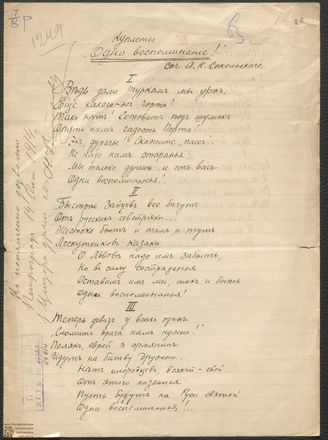 1249
Куплеты
"Одни воспоминанье!"
Соч. А. К. Сокольскаго.
I
Ведь дали туркамъ мы урокъ,
Еще какого-то чорта!
Такъ нѣтъ! Готовитъ подъ шумокъ
Опять намъ гадость Порта
Эй, дураки! Скажите "пасъ"!
Не надо намъ старанья
Мы только дунемъ и отъ васъ
Одни воспоминанья!..
II
Быстрѣе зайцевъ все бѣгутъ
Отъ русскихъ
Жестоко бьютъ и тамъ и тутъ
Лоскутниковъ казаки
О Львовъ надо имъ забыть,
Но въ силу состраданья
Оставимъ имъ мы, такъ и быть
Одни воспоминанья!
III
Теперь девизъ у всѣхъ одинъ
"Сломить врага намъ нужно!"
Полякъ, еврей и армянинъ
Идутъ на битву дружно...
Нѣтъ инородцевъ, всякій - свой
Отъ этого названья
Пусть будутъ на Руси святой
Одни воспоминанья!...
къ исполненію дозволено
Петроградъ, 14